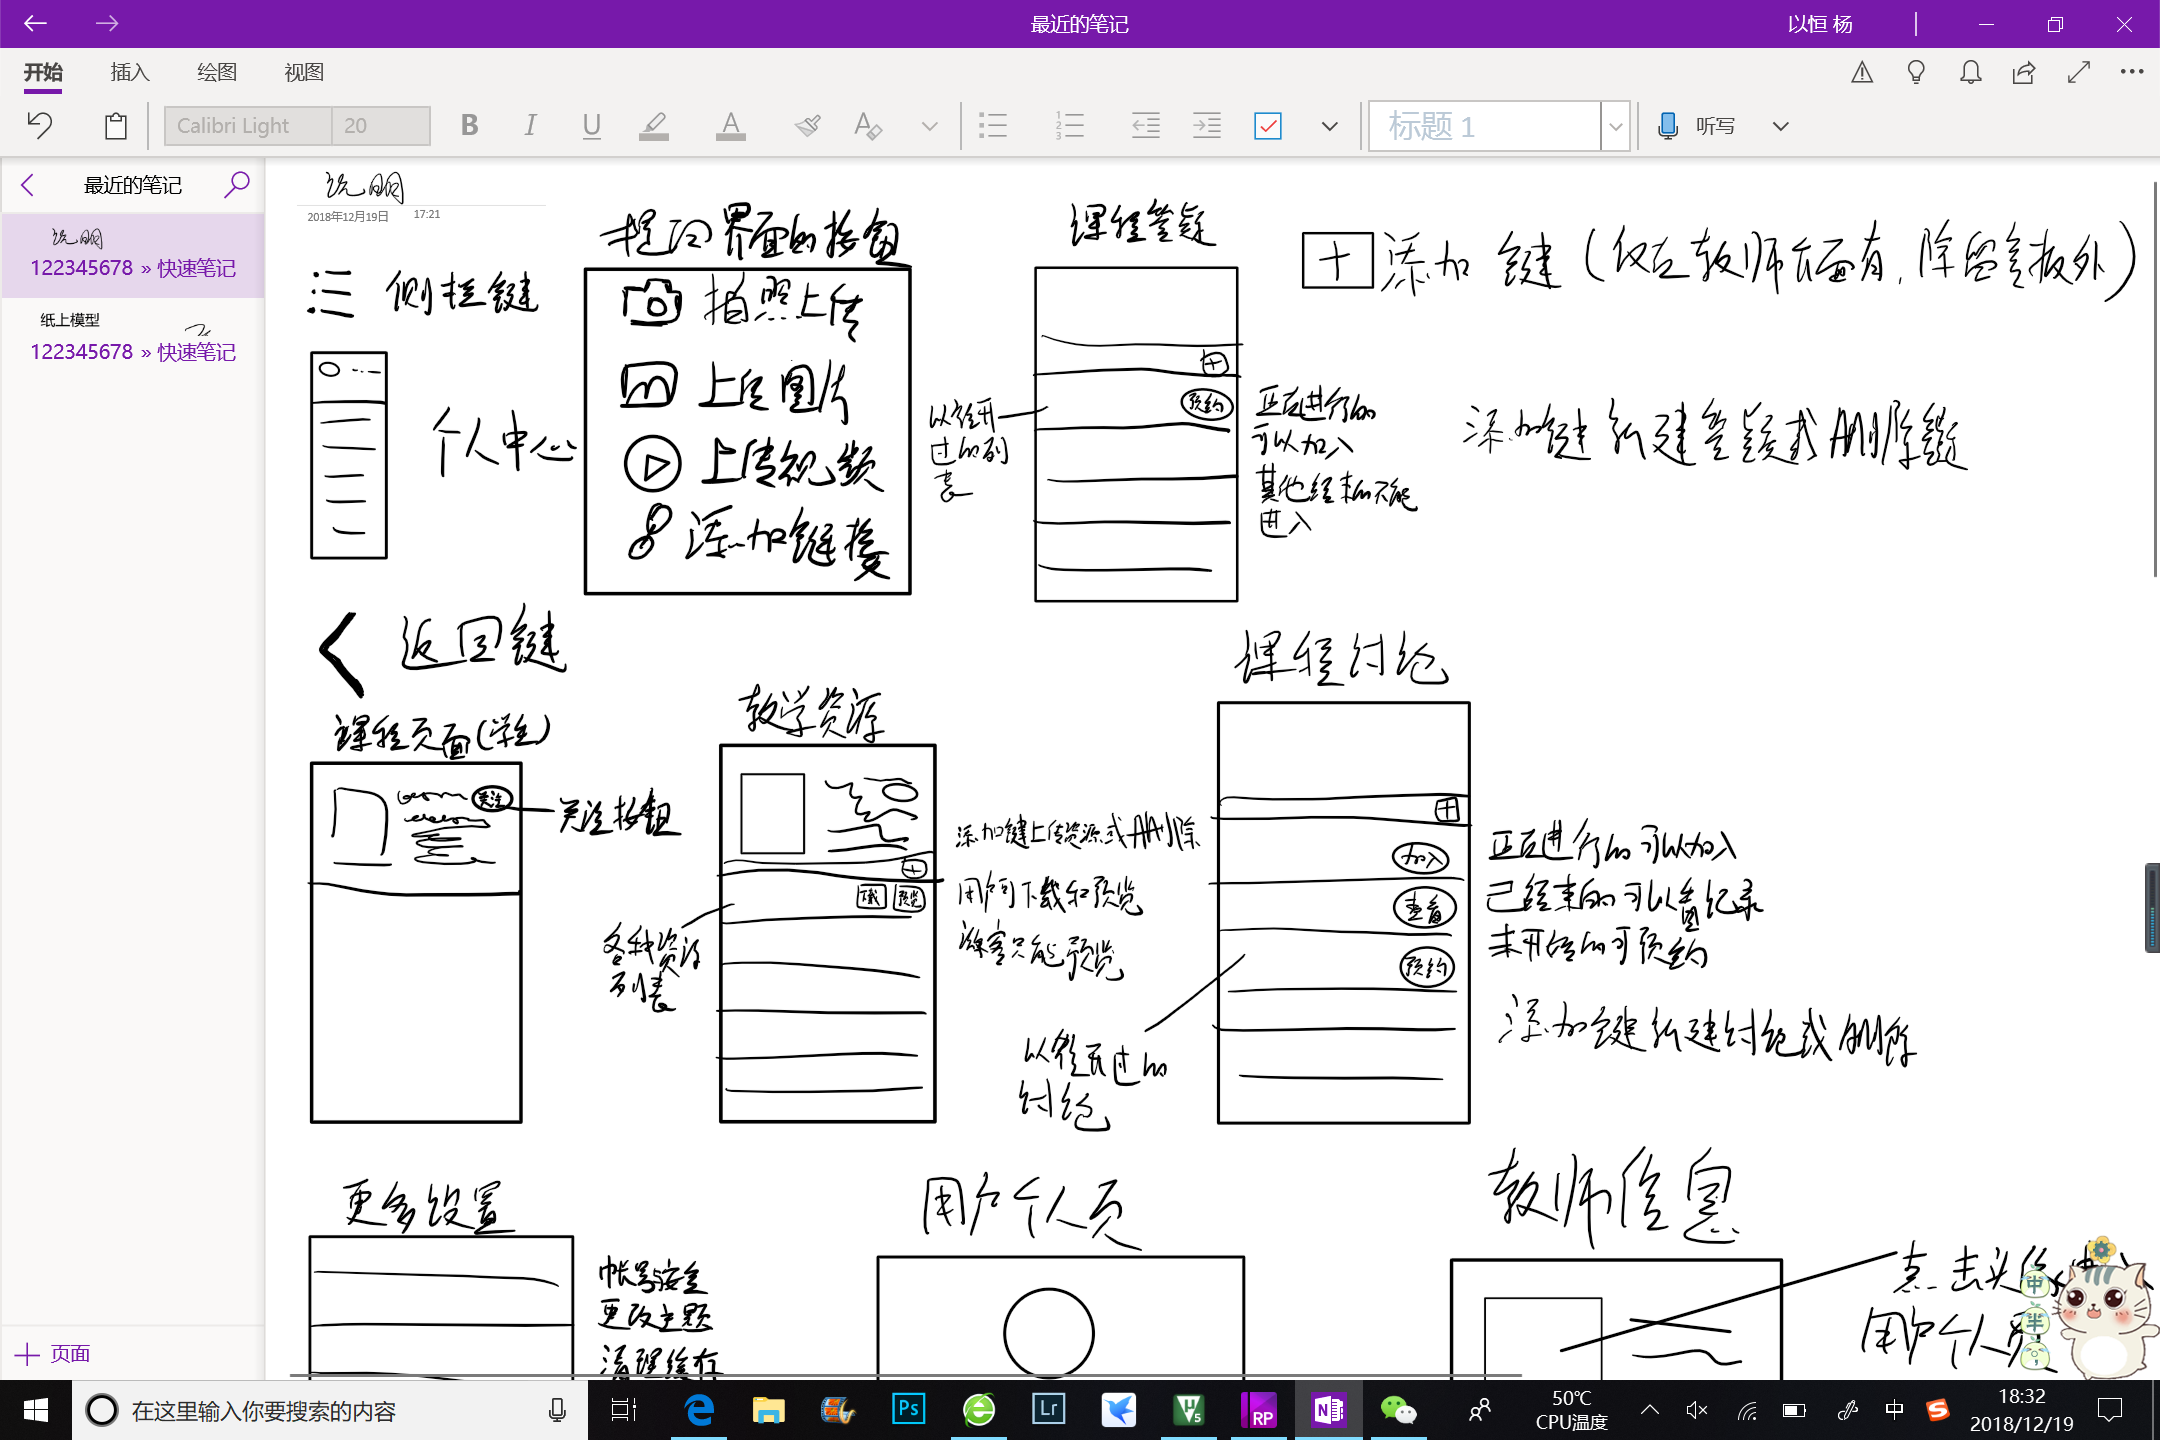 最近的笔记
以恒 杨
开始 插入 绘图 视图
Calibri Light 20
B I U A
标题 1
听写
最近的笔记
说明
122345678 » 快速笔记
纸上模型
122345678 » 快速笔记
页面
说明
2018年12月19日 17:21
侧栏键
个人中心
提问界面的按钮
拍照上传
上传图片
上传视频
添加链接
课程答疑
预约
以往开
过的列
表
正在进行的
可以加入
其他结束的不能
进入
添加键(仅在教师页面有,除留言板外)
添加键新建答疑或删除
返回键
课程页面(学生)
关注
关注按钮
教学资源
下载 预览
各种资源
列表
添加键上传资源或删除
用户可下载和预览
游客只能预览
课程讨论
加入
查看
预约
以往开过的
讨论
正在进行的可以加入
已结束的可以查看记录
未开始的可预约
添加键新建讨论或删除
更多设置
帐号与安全
更改主题
清理缓存
用户个人页
教师信息
点击头像进入
用户个人页
中
半
在这里输入你要搜索的内容
Ps
Lr
V5
RP
N
50℃
CPU温度
中
S
18:32
2018/12/19